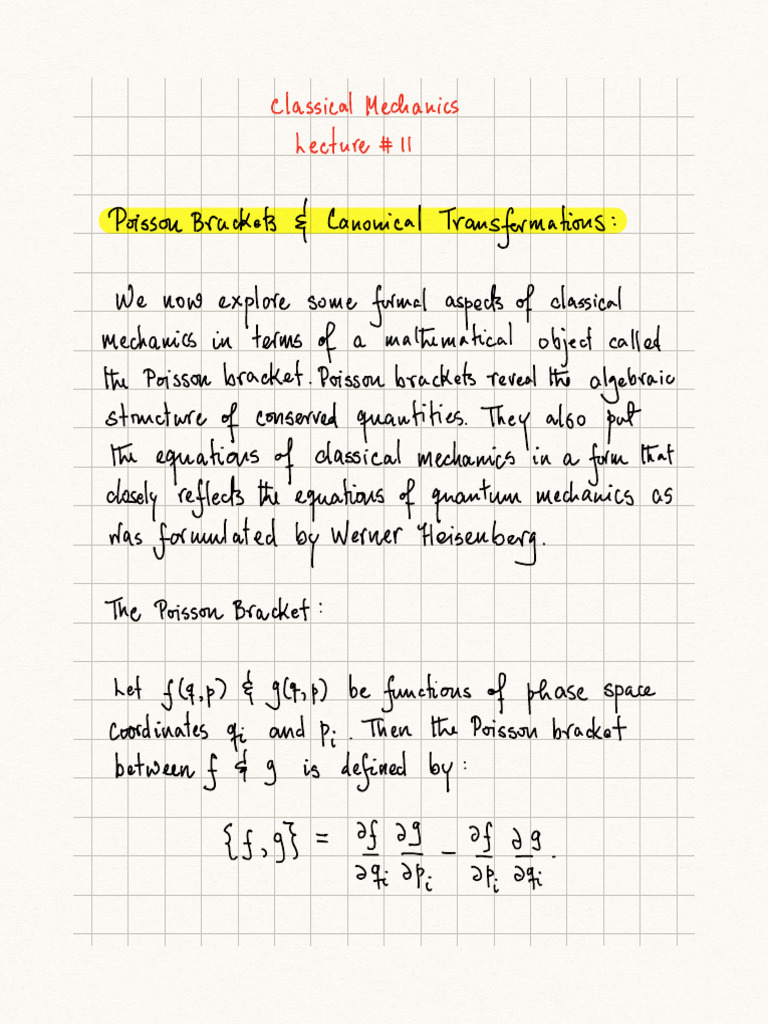 Classical Mechanics
Lecture # 11
Poisson Brackets & Canonical Transformations:
We now explore some formal aspects of classical
mechanics in terms of a mathematical object called
the Poisson bracket. Poisson brackets reveal the algebraic
structure of conserved quantities. They also put
the equations of classical mechanics in a form that
closely reflects the equations of quantum mechanics as
was formulated by Werner Heisenberg.
The Poisson Bracket:
Let f(q,p) & g(q,p) be functions of phase space
coordinates qᵢ and pᵢ. Then the Poisson bracket
between f & g is defined by:
{f,g} = ∂f/∂qᵢ ∂g/∂pᵢ - ∂f/∂pᵢ ∂g/∂qᵢ.